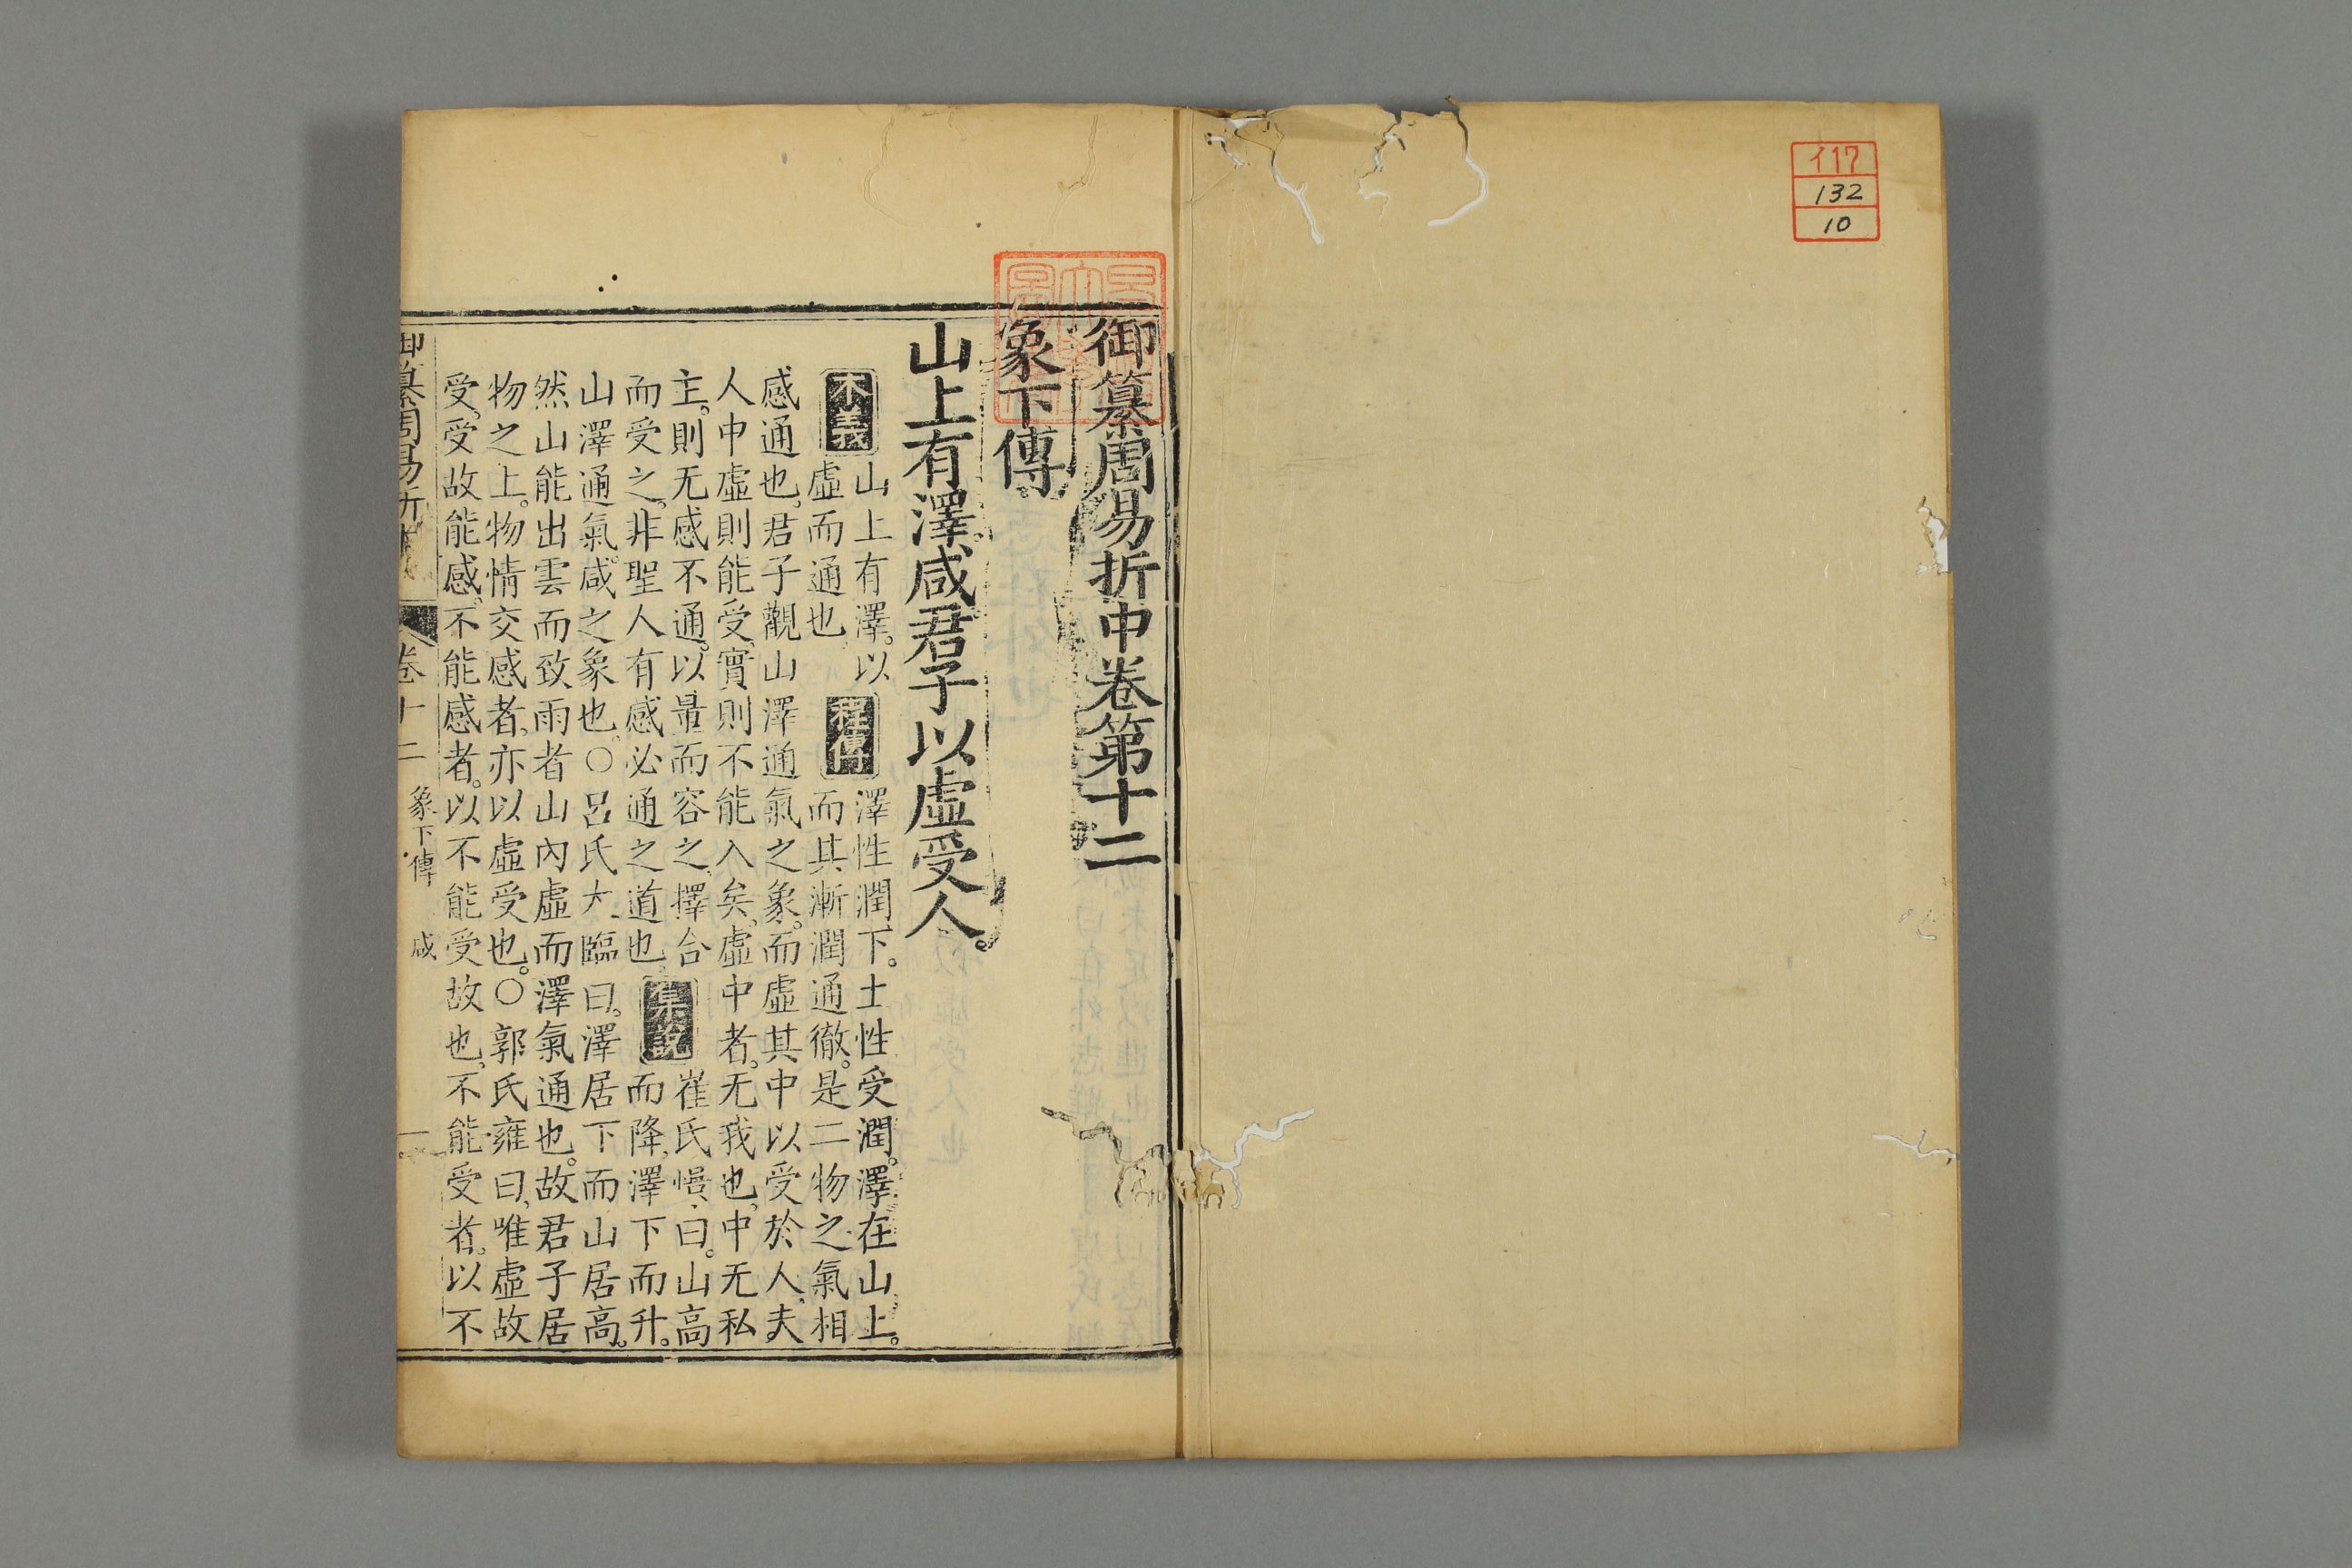 イ17
132
10
御纂周易折中卷第十二
象下傳
山上有澤。咸君子以虛受人。
本義
山上有澤。以
虛而通也
程傳
澤性潤下。土性受潤。澤在山上。
而其漸潤通徹。是二物之氣相
感通也。君子觀山澤通氣之象。而虛其中以受於人、夫
人中虛則能受、實則不能入矣。虛中者。无我也、中无私
主。則无感不通。以量而容之、擇合
而受之。非聖人有感必通之道也
集說
崔氏憬曰。山高
而降、澤下而升。
山澤通氣。咸之象也○呂氏大臨曰。澤居下而山居高。
然山能出雲而致雨者山內虛而澤氣通也。故君子居
物之上。物情交感者、亦以虛受也。○郭氏雍曰、唯虛故
受。受故能感。不能感者。以不能受故也、不能受者。以不
御纂周易折
卷十二 象下傳 咸 一